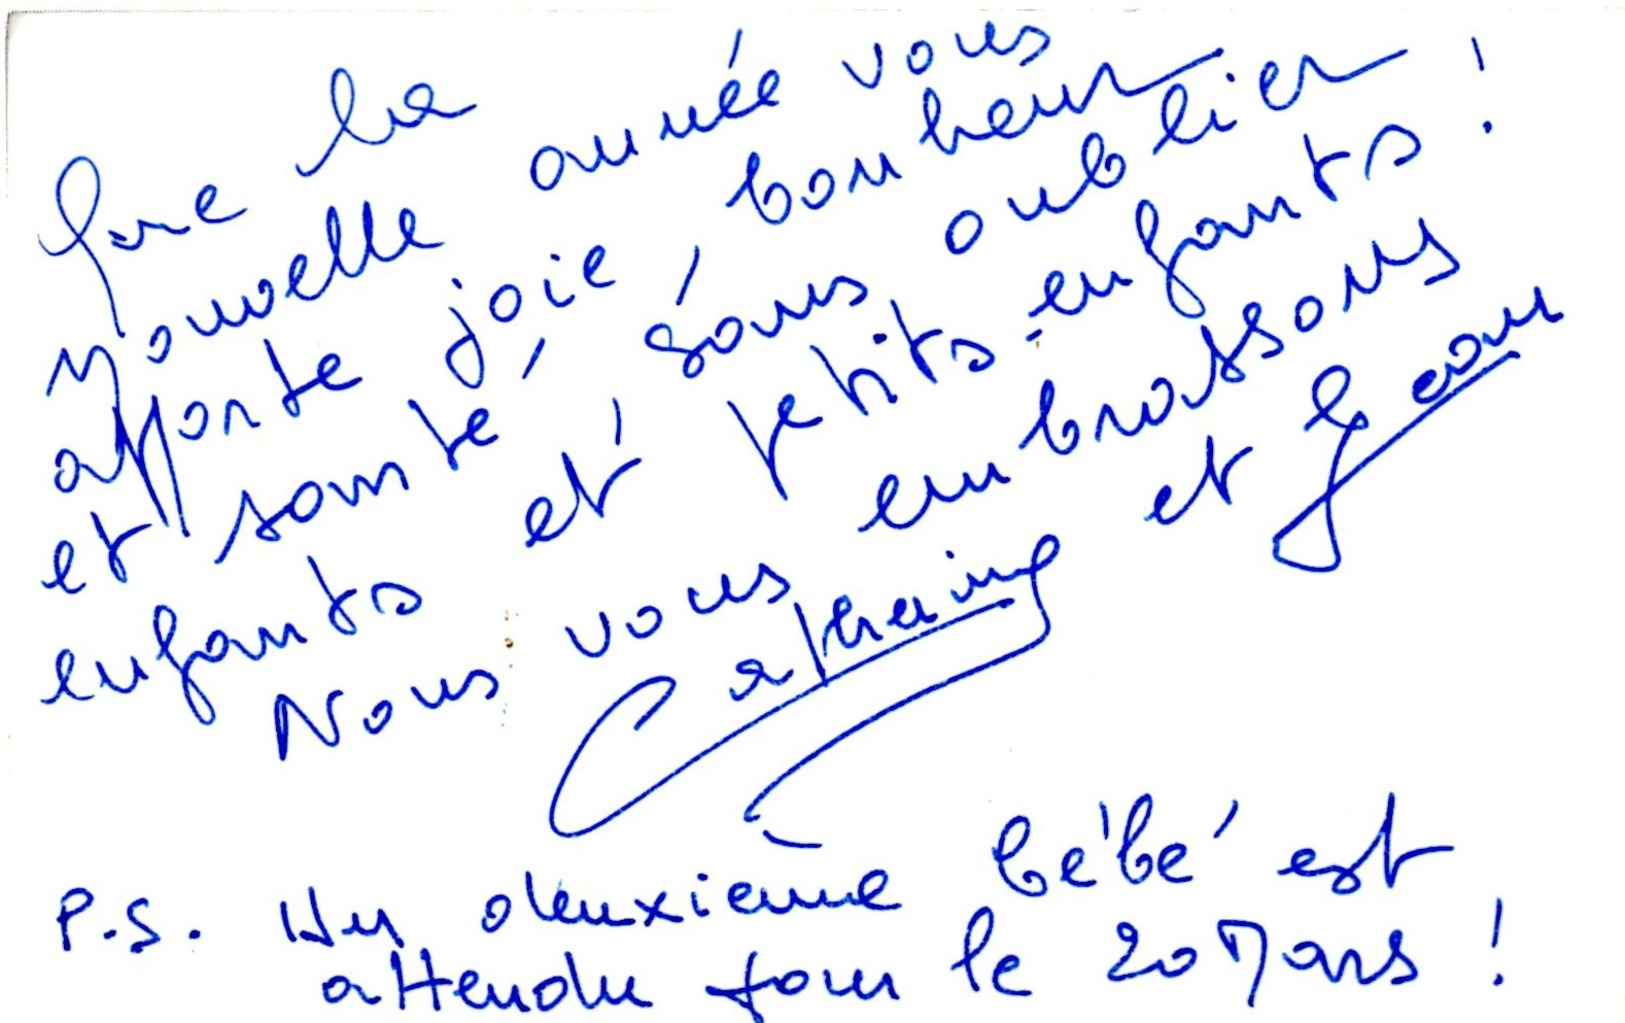 Que la
nouvelle année vous
apporte joie, bonheur
et santé, sans oublier
enfants et petits-enfants !
Nous vous embrassons
Catherine et Jean
P.S. Un deuxième bébé est
attendu pour le 20 Mars !